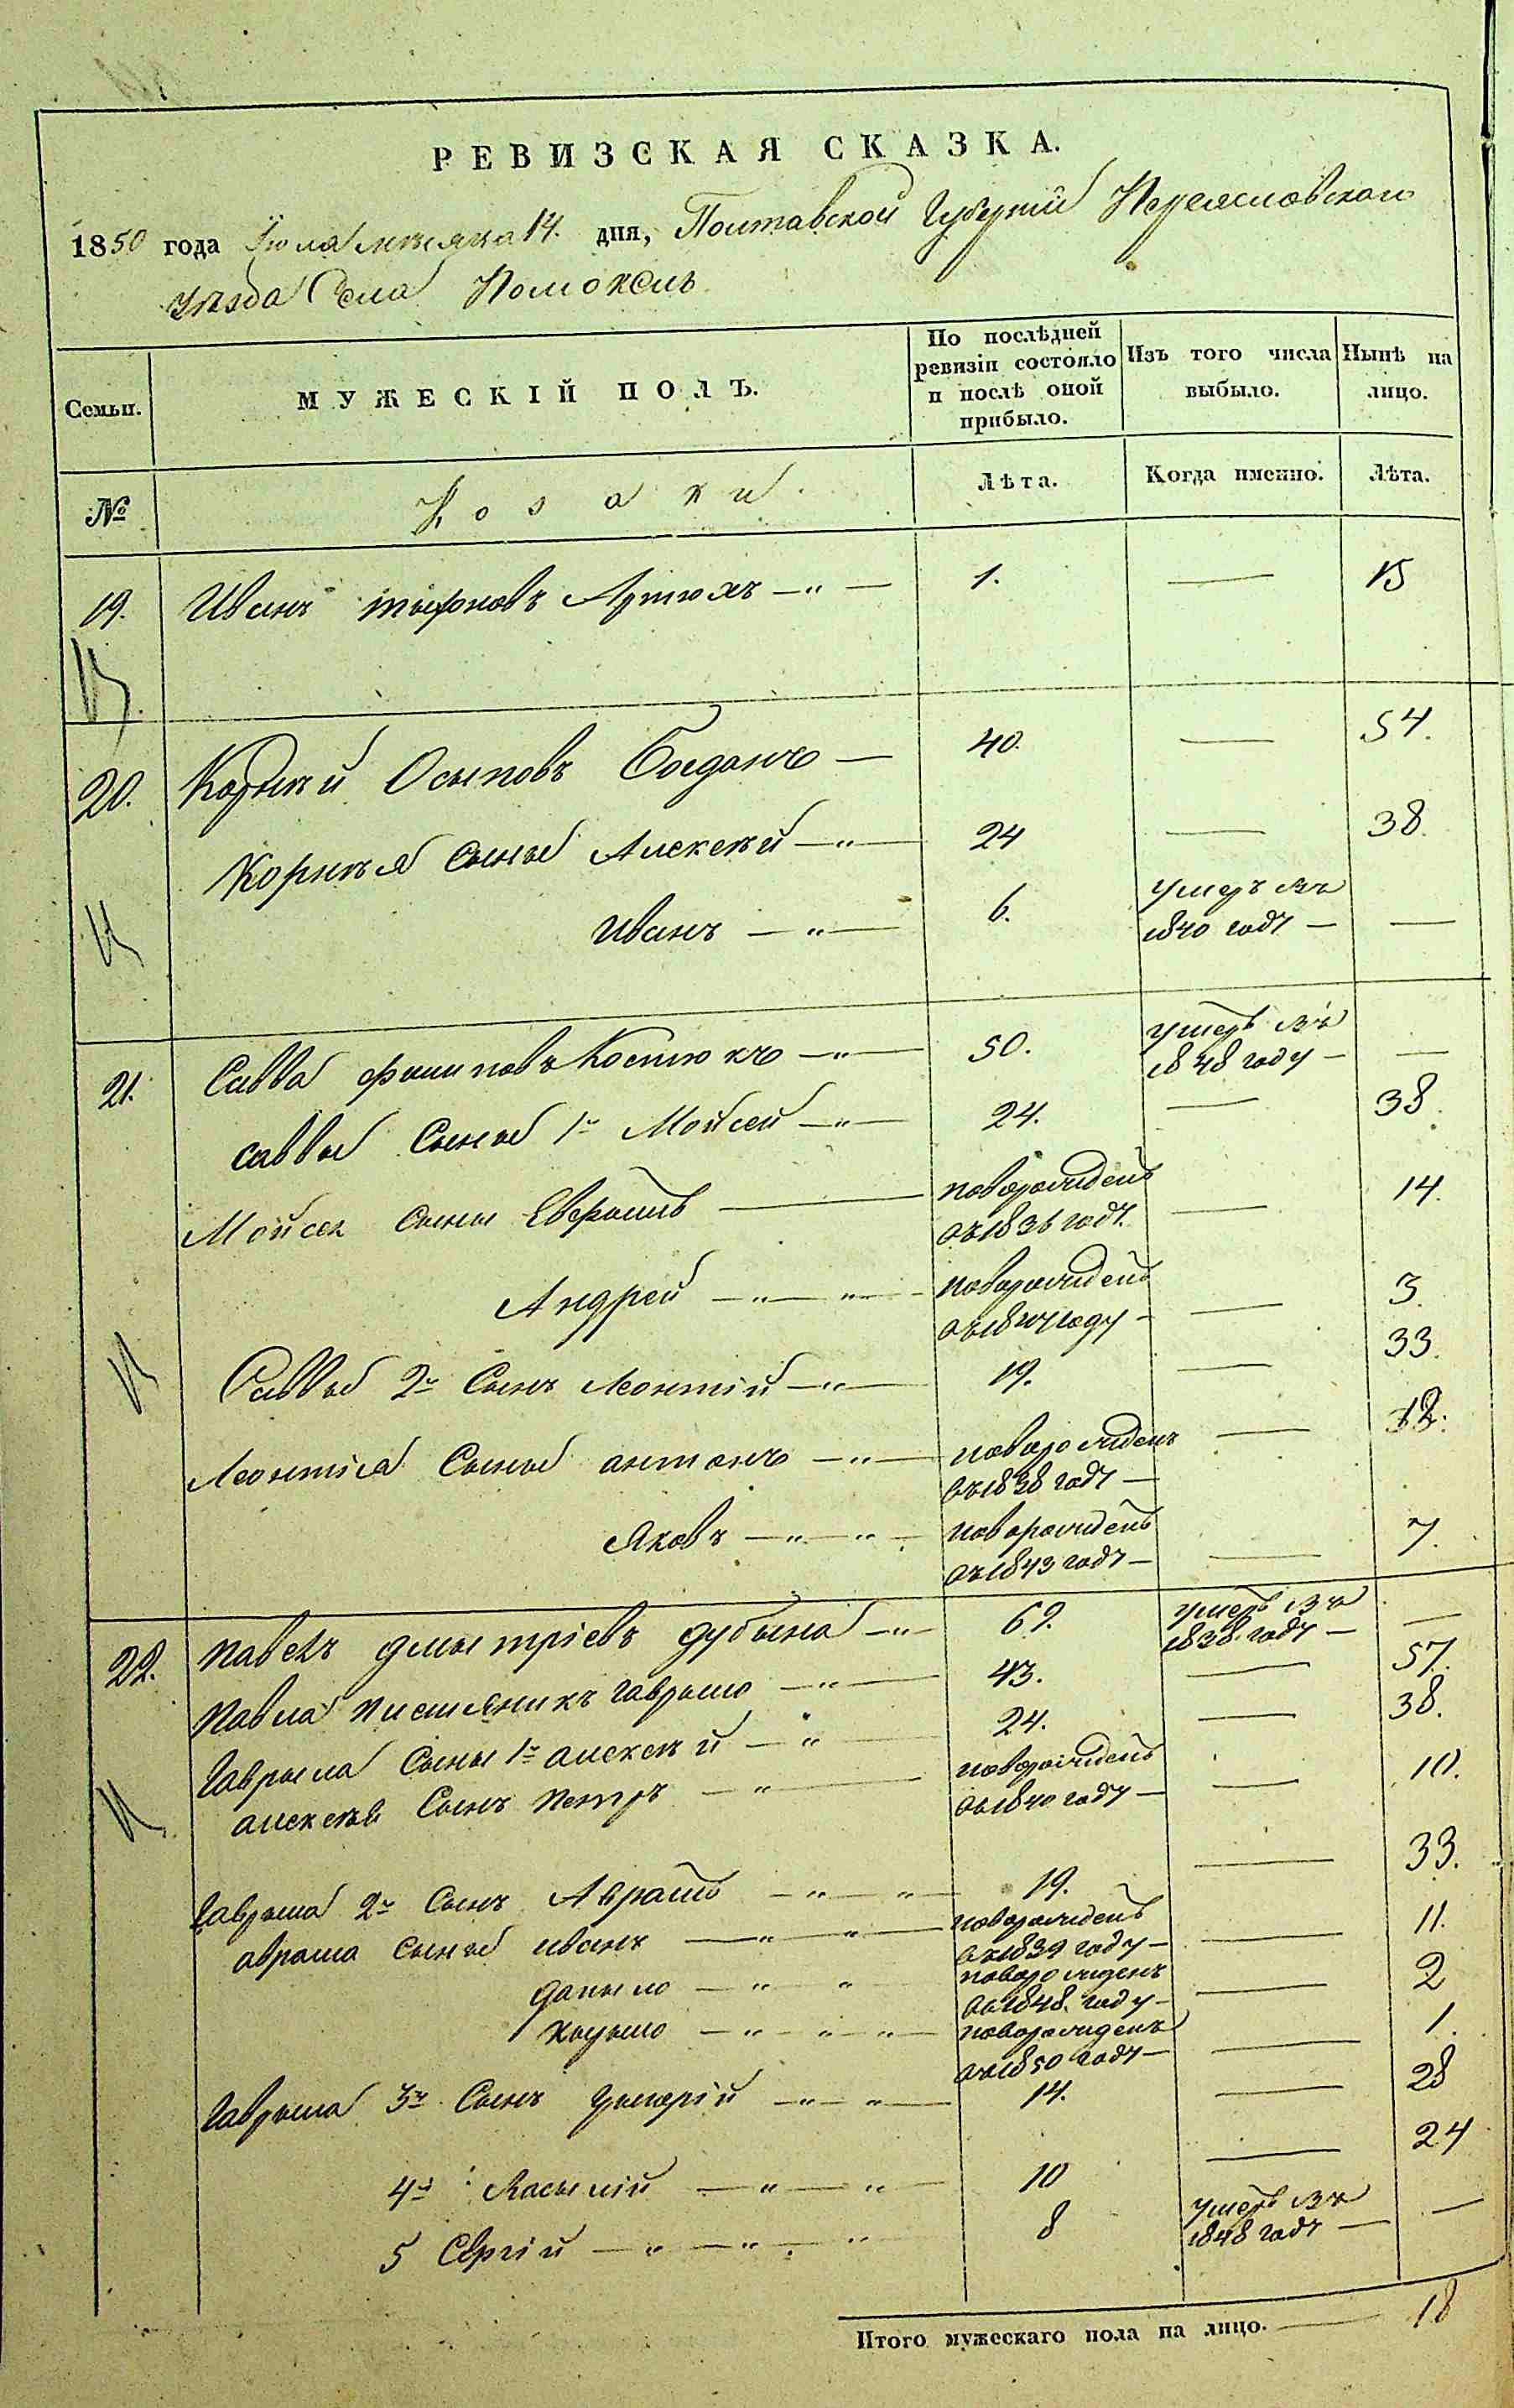 РЕВИЗСКАЯ СКАЗКА.
1850 года Іюля мѣсяца 14. дня, Полтавской Губерніи Переясловского
уѣзда Села Помоклъ
Семьи.
МУЖЕСКІЙ ПОЛЪ.
По послѣдней ревизіи состояло и послѣ оной прибыло.
Изъ того числа выбыло.
Нынѣ на лицо.
№
Козаки.
Лѣта.
Когда именно.
Лѣта.
19. Иванъ Артюхъ —„— 1. — 15
20. Корнѣй Осыповъ Богданъ — 40. — 54.
Корнѣя Сыны Алексѣй —„— 24 — 38.
Иванъ —„— 6. умеръ въ 1840 году — —
21. Савва Филиповъ Костюкъ —„— 50. умеръ въ 1848 году — —
Саввы Сыны 1й Мойсей —„— 24. — 38.
Мойсея Сыны Евфимъ — новорожденъ въ 1836 году. — 14.
Андрей —„—„— новорожденъ въ 1847 году — — 3.
Саввы 2й Сынъ Леонтій —„— 19. — 33.
Леонтія Сыны антонъ —„— новорожденъ въ 1838 году — — 12.
Яковъ —„—„— новорожденъ въ 1843 году — — 7.
22. Павелъ дмытріевъ дубына —„— 69. умеръ въ 1838 году — —
Павла Гаврыло —„— 43. — 57.
Гаврыла Сыны 1й алексѣй —„ 24. — 38.
алексѣя Сынъ Петръ —„— новорожденъ въ 1840 году — — 10.
Гаврыла 2й Сынъ Аврамъ —„—„— 19. — 33.
аврама Сыны иванъ —„—„— новорожденъ въ 1839 году — — 11.
Даныло —„—„ новорожденъ въ 1848 году — — 2
Кырыло —„—„—„— новорожденъ въ 1850 году — — 1.
Гаврыла 3й Сынъ Грыгорій —„—„— 14. — 28
4й Васылій —„—„— 10 — 24
5 Сергій —„—„—„ 8 умеръ въ 1848 году — —
Итого мужескаго пола на лицо. — 18